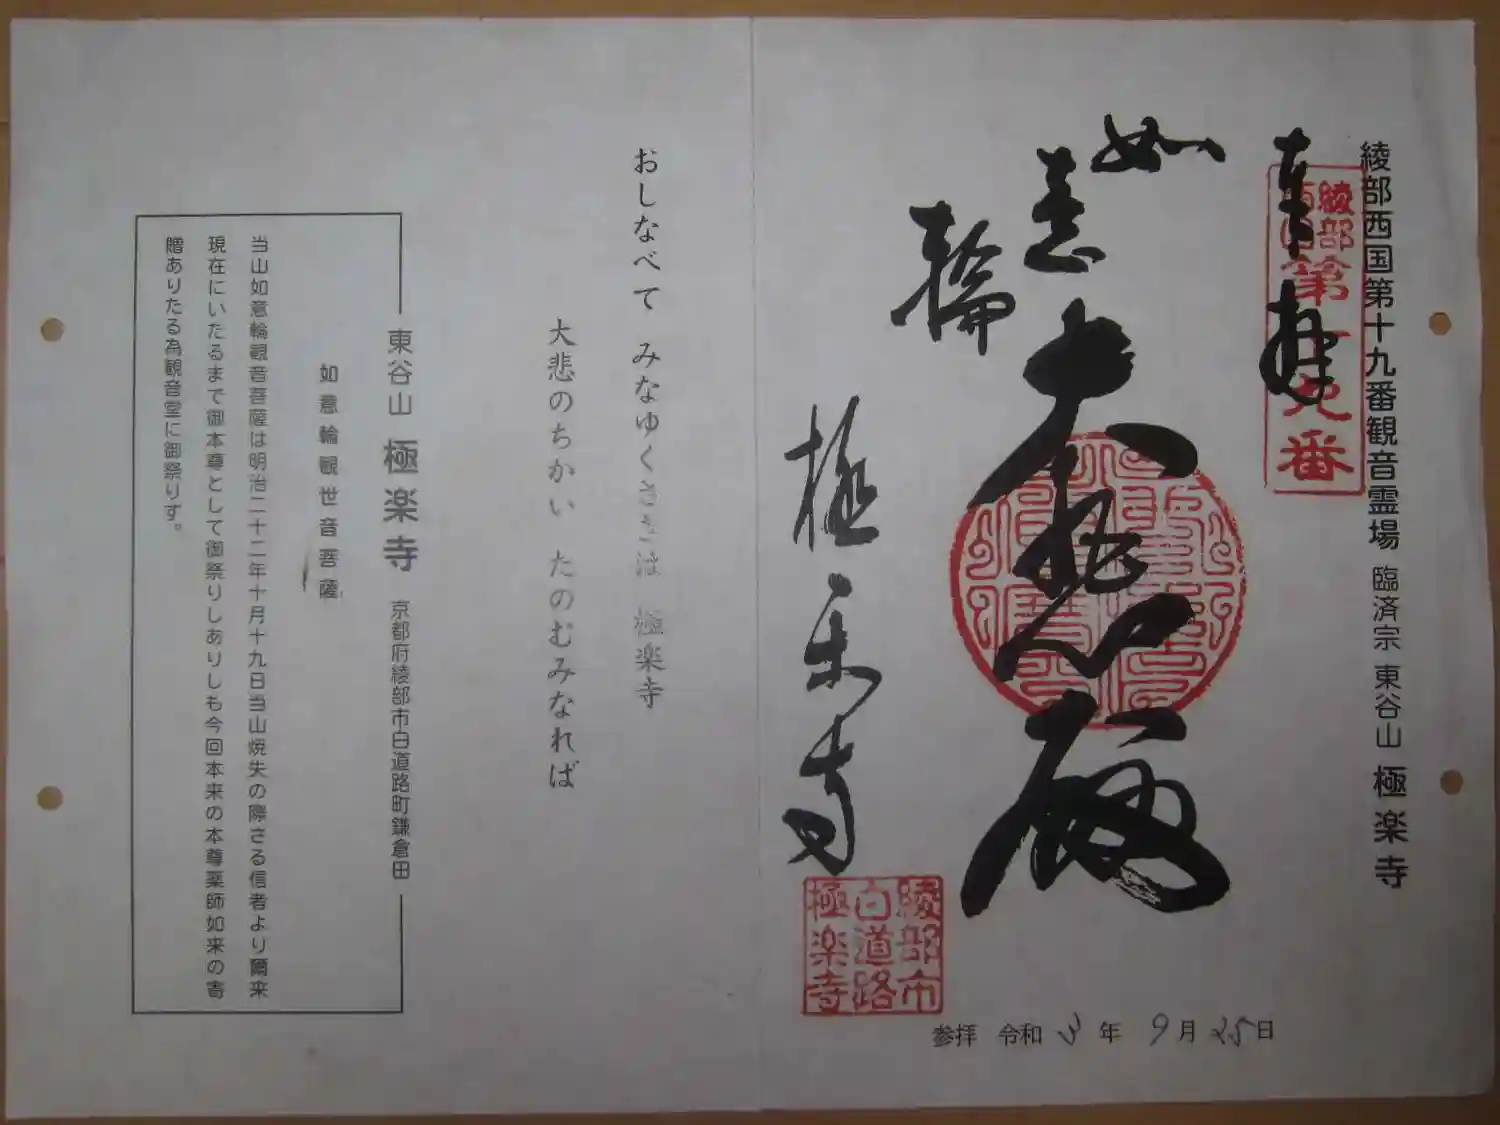 綾部西国第十九番観音霊場 臨済宗 東谷山 極楽寺
奉拝
綾部西国第十九番
如意輪
大悲殿
極楽寺
綾部市白道路極楽寺
参拝 令和3年9月25日
おしなべて みなゆくさきは 極楽寺
大悲のちかい たのむみなれば
東谷山 極楽寺 京都府綾部市白道路町鎌倉田
如意輪観世音菩薩
当山如意輪観音菩薩は明治二十二年十月十九日当山焼失の際さる信者より爾来
現在にいたるまで御本尊として御祭りしありしも今回本来の本尊薬師如来の寄
贈ありたる為観音堂に御祭りす。